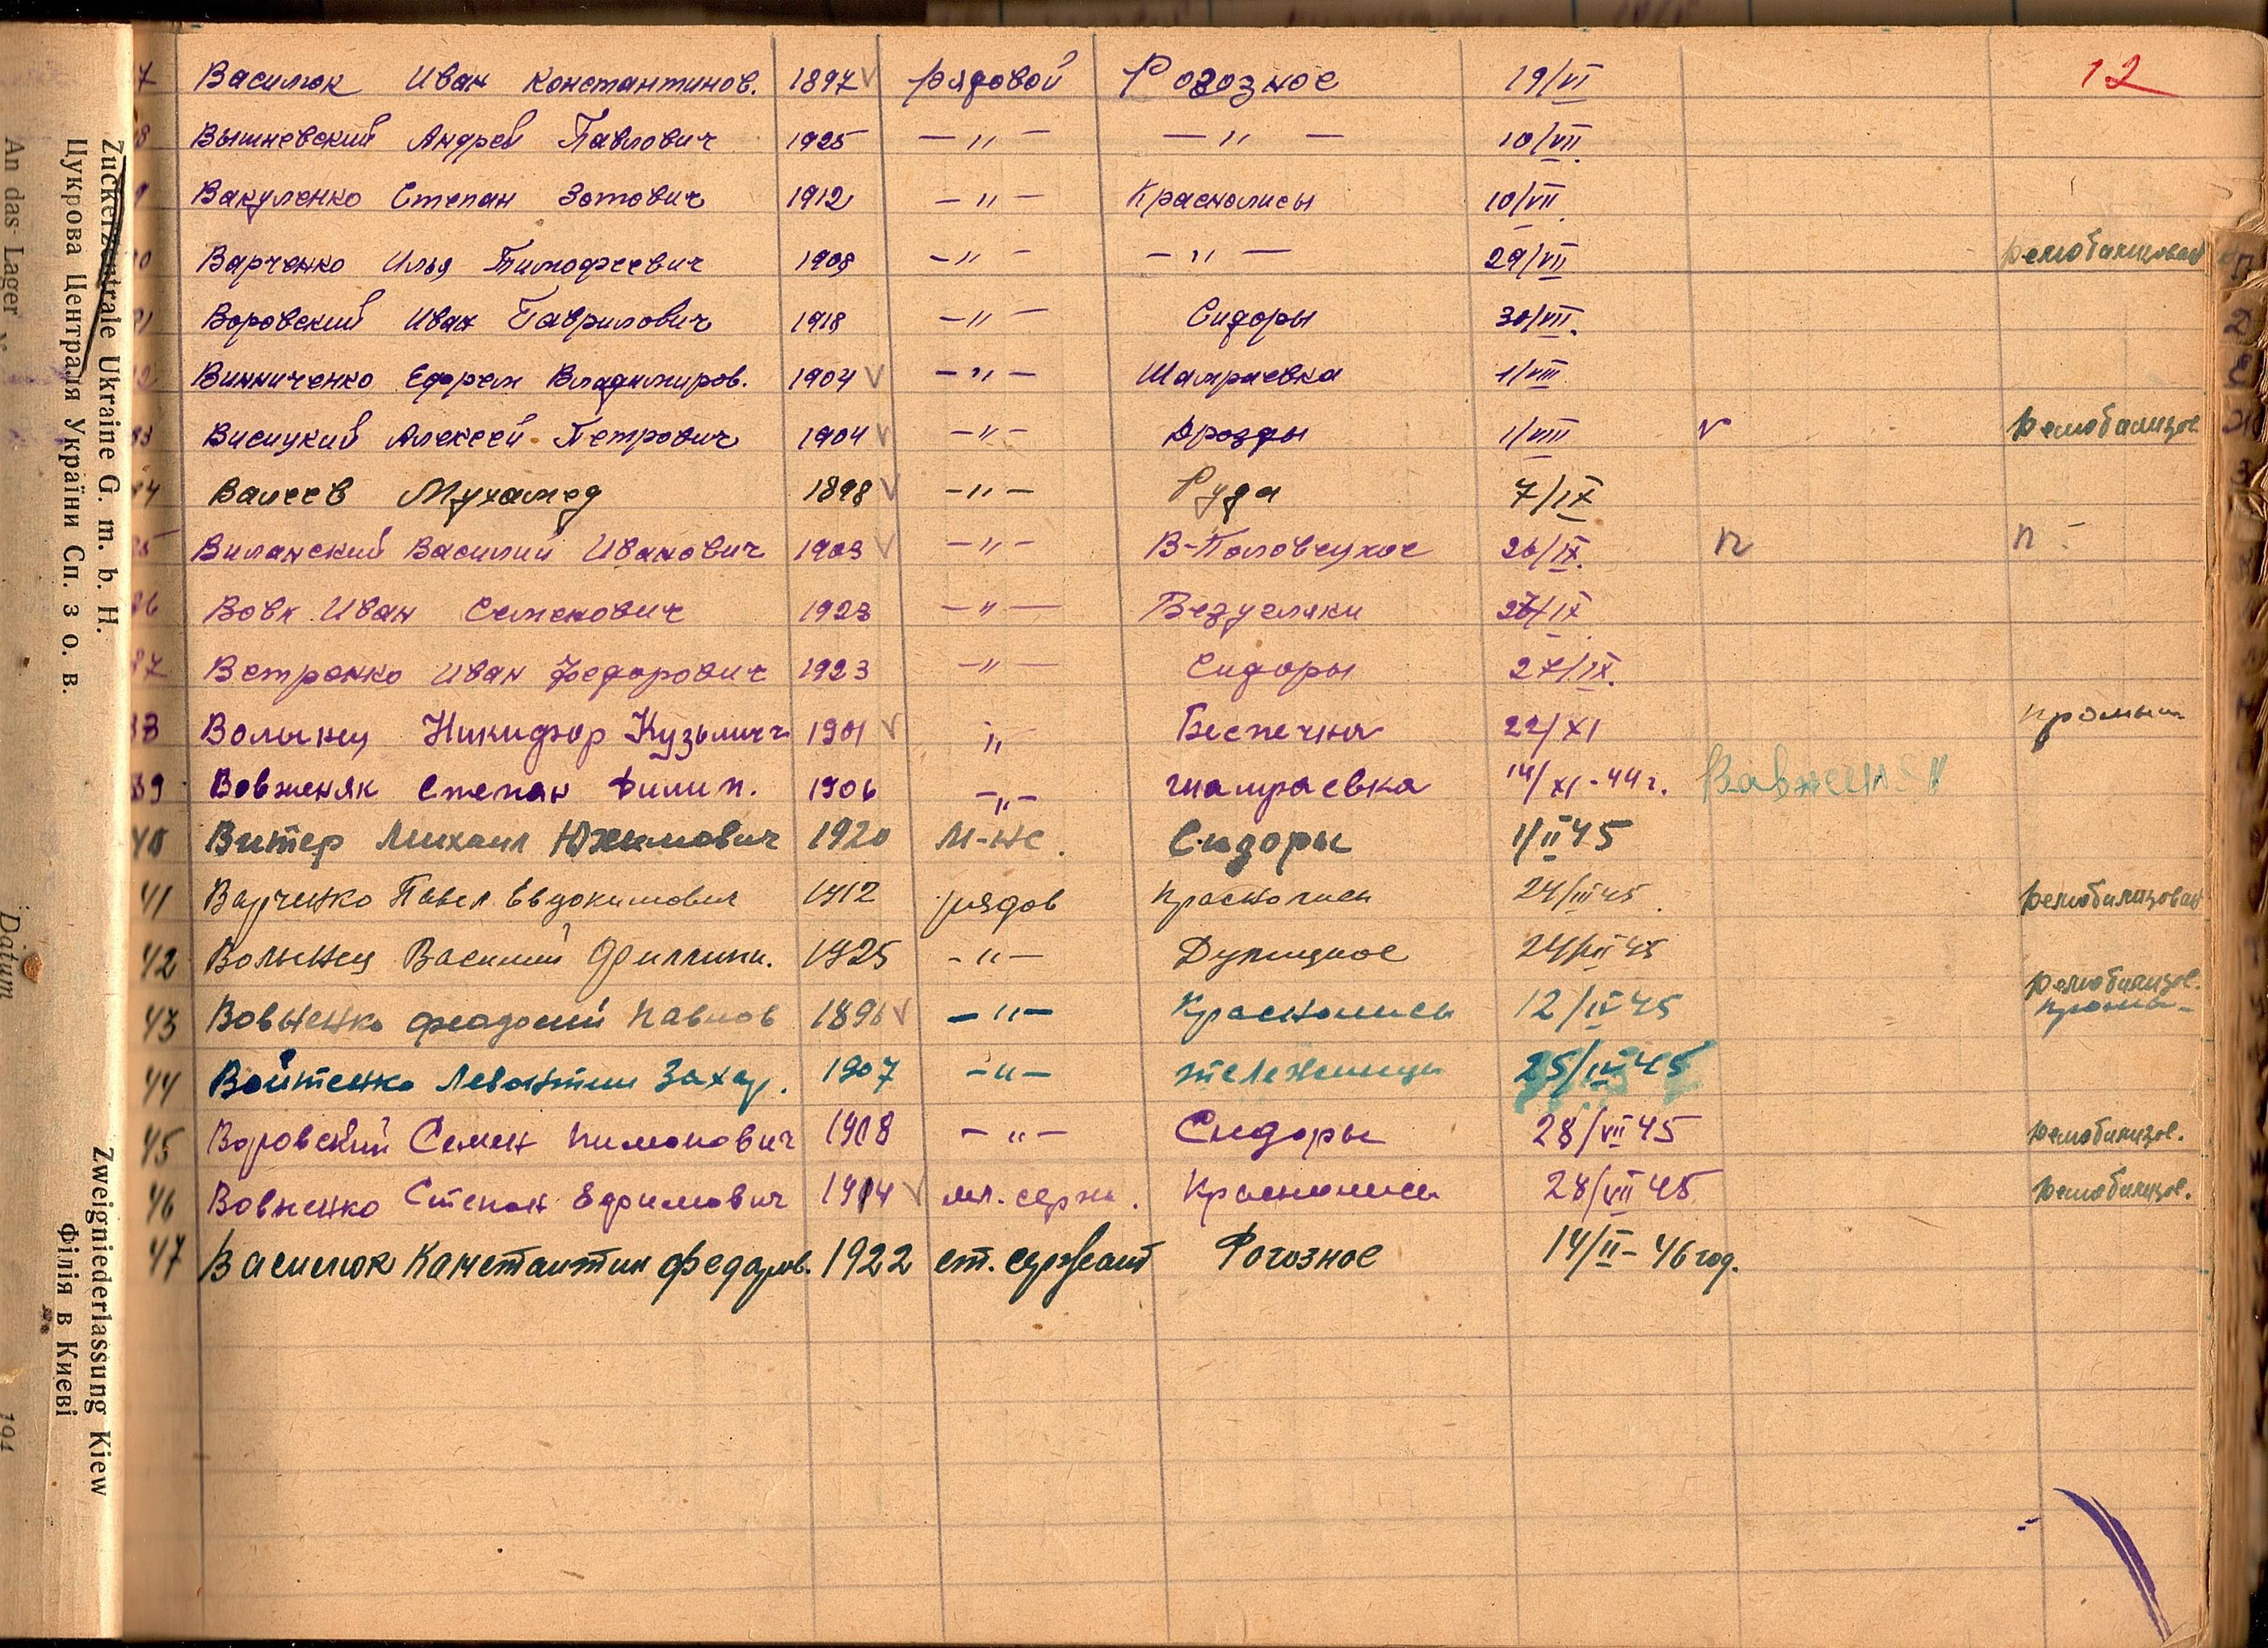 12
7 Василюк Иван Константинов. 1897 V рядовой Розозное 19/VI
8 Вышневский Андрей Павлович 1925 — " — — " — 10/VII.
9 Вакуленко Степан Зотович 1912 — " — Краснолисы 10/VII.
0 Варченко Илья Тимофеевич 1908 — " — — " — 29/VII
1 Воровский Иван Гаврилович 1918 — " — Сидоры 30/VII.
2 Винниченко Ефрем Владимиров. 1904 V — " — Шамраевка 1/VIII
33 Висицкий Алексей Петрович 1904 V — " — Дрозды 1/VIII V Демобилизов
34 Валеев Мухамед 1898 V — " — Руда 7/IX
35 Виланский Василий Иванович 1903 V — " — В-Половецкое 26/IX. п п -
36 Вовк Иван Семенович 1923 — " — Безугляки /IX.
37 Ветренко Иван Федорович 1923 — " — Сидоры 27/IX.
38 Волынец Никифор Кузьмич 1901 V " Беспечна 22/XI
39 Вовженяк Степан Филип. 1906 — " — шамраевка 14/XI-44 г.
40 Витер Михаил Юхимович 1920 М-нс. Сидоры 1/II 45
41 Варченко Павел Евдокимович 1912 рядов Краснолиси 24/III 45. Демобилизован
42 Волынец Василий Филлипп. 1925 - " — Дулицкое 24/III 45
43 Вовненко феодосий Павлов 1896 V — " — Краснолиси 12/IV 45 Демобилизов.
44 Войтенко Левонтии Захар. 1907 — " — тележинци 25/IV 45
45 Воровский Семен Пимонович 1908 — " — Сидоры 28/VII 45 Демобилизов.
46 Вовненко Степан Ефримович 1914 V мл. серж. Краснолиси 28/VII 45 Демобилизов.
47 Василюк Канстантин федаров. 1922 ст. сержант Рогозное 14/II – 46 год.
Zuckerzentrale Ukraine G. m. b. H.
Цукрова Централя України Сп. з о. в.
Zweigniederlassung Kiew
Філія в Києві
An das Lager
Datum
194